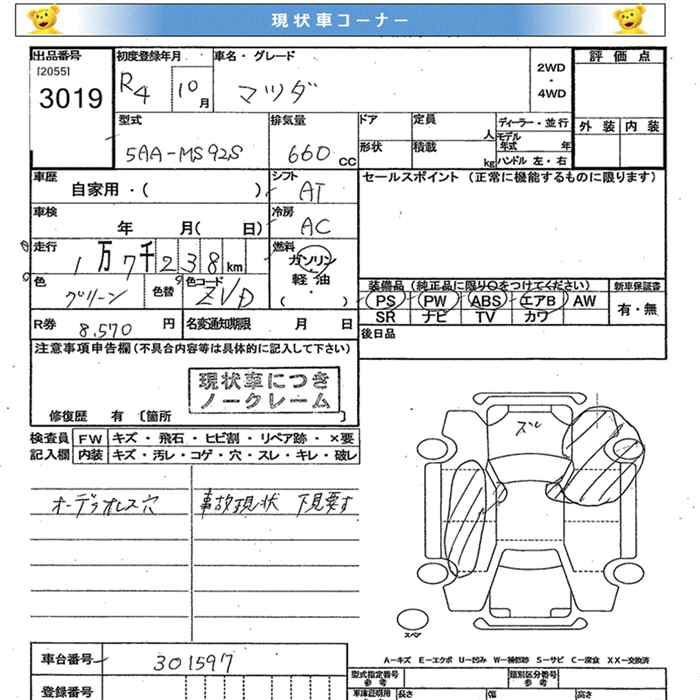 現状車コーナー
出品番号 初度登録年月 車名・グレード 評価点
[2055]
3019 R4 10月 マツダ 2WD・4WD
外装 内装
型式 排気量 ドア 定員 人 ディーラー・並行
5AA-MS92S 660 CC 形状 積載 kg モデル年式 年
ハンドル 左・右
車歴 自家用・( ) シフト AT セールスポイント (正常に機能するものに限ります)
車検 年 月( 日) 冷房 AC
走行 1万7千238km 燃料 ガソリン・軽油・( )
色 グリーン 色替 色コード ZVD 装備品 (純正品に限り○をつけてください) 新車保証書
PS PW ABS エアB AW 有・無
SR ナビ TV カワ
R券 8,570円 名変通知期限 月 日
後日品
注意事項申告欄(不具合内容等は具体的に記入して下さい)
現状車につき
ノークレーム
修復歴 有 〔箇所 〕
検査員 FW キズ・飛石・ヒビ割・リペア跡・×要
記入欄 内装 キズ・汚レ・コゲ・穴・スレ・キレ・破レ
オーディオレス穴 事故現状 下見要す
ズレ
スペア
A-キズ E-エクボ U-凹み W-補修跡 S-サビ C-腐食 XX-交換済
車台番号 301597
型式指定番号 参考 類別区分番号 参考
登録番号 車庫証明用 長さ 幅 高さ